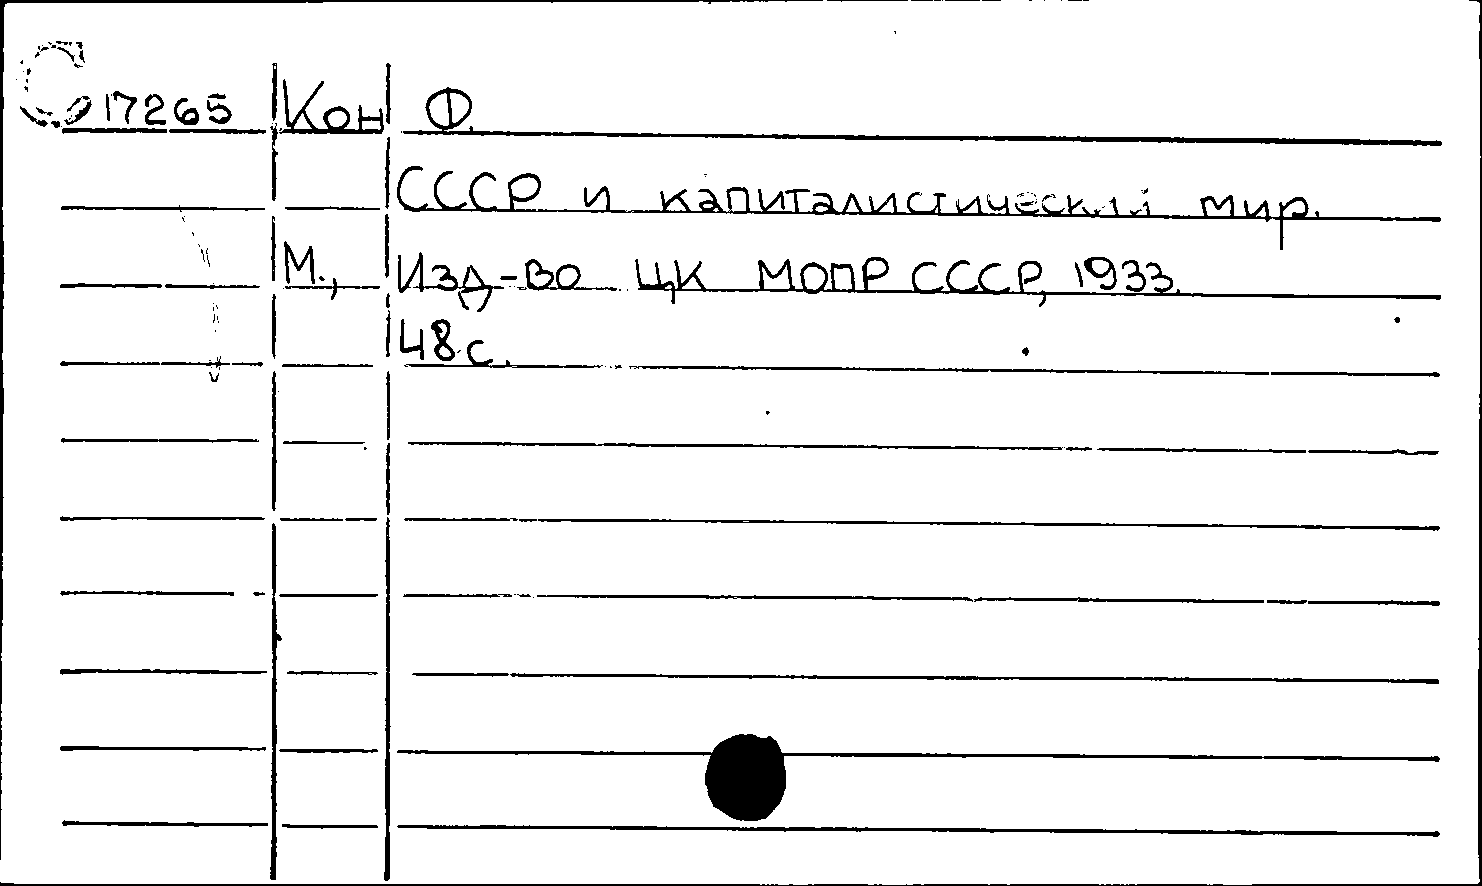 С 17265 Кон Ф.
СССР и капиталистический мир.
М., Изд-во ЦК МОПР СССР, 1933.
48 с.